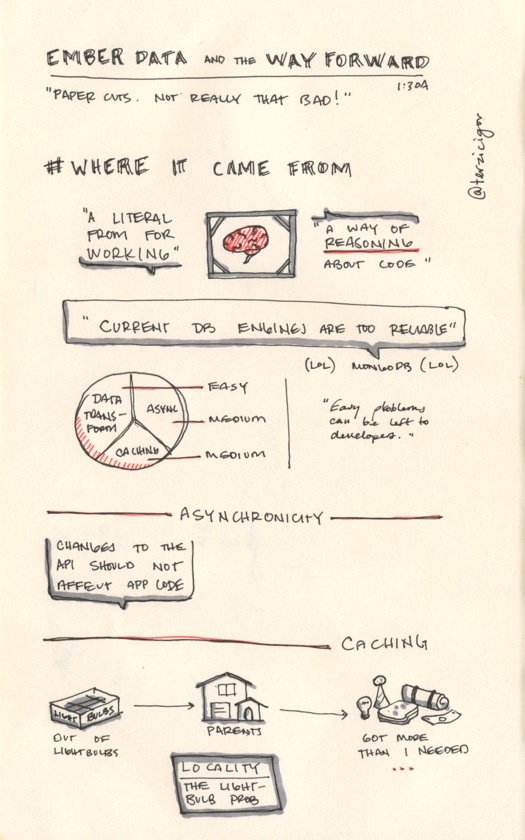 EMBER DATA AND THE WAY FORWARD
"PAPER CUTS. NOT REALLY THAT BAD!"
1:30A
@terzicigor
# WHERE IT CAME FROM
"A LITERAL
FROM FOR
WORKING"
"A WAY OF
REASONING
ABOUT CODE"
"CURRENT DB ENGINES ARE TOO RELIABLE"
(LOL) MONGODB (LOL)
DATA
TRANS-
FORM
ASYNC
CACHING
EASY
MEDIUM
MEDIUM
"Easy problems
can be left to
developers."
ASYNCHRONICITY
CHANGES TO THE
API SHOULD NOT
AFFECT APP CODE
CACHING
LIGHT BULBS
OUT OF
LIGHTBULBS
PARENTS
GOT MORE
THAN I NEEDED
...
LOCALITY
THE LIGHT-
BULB PROB